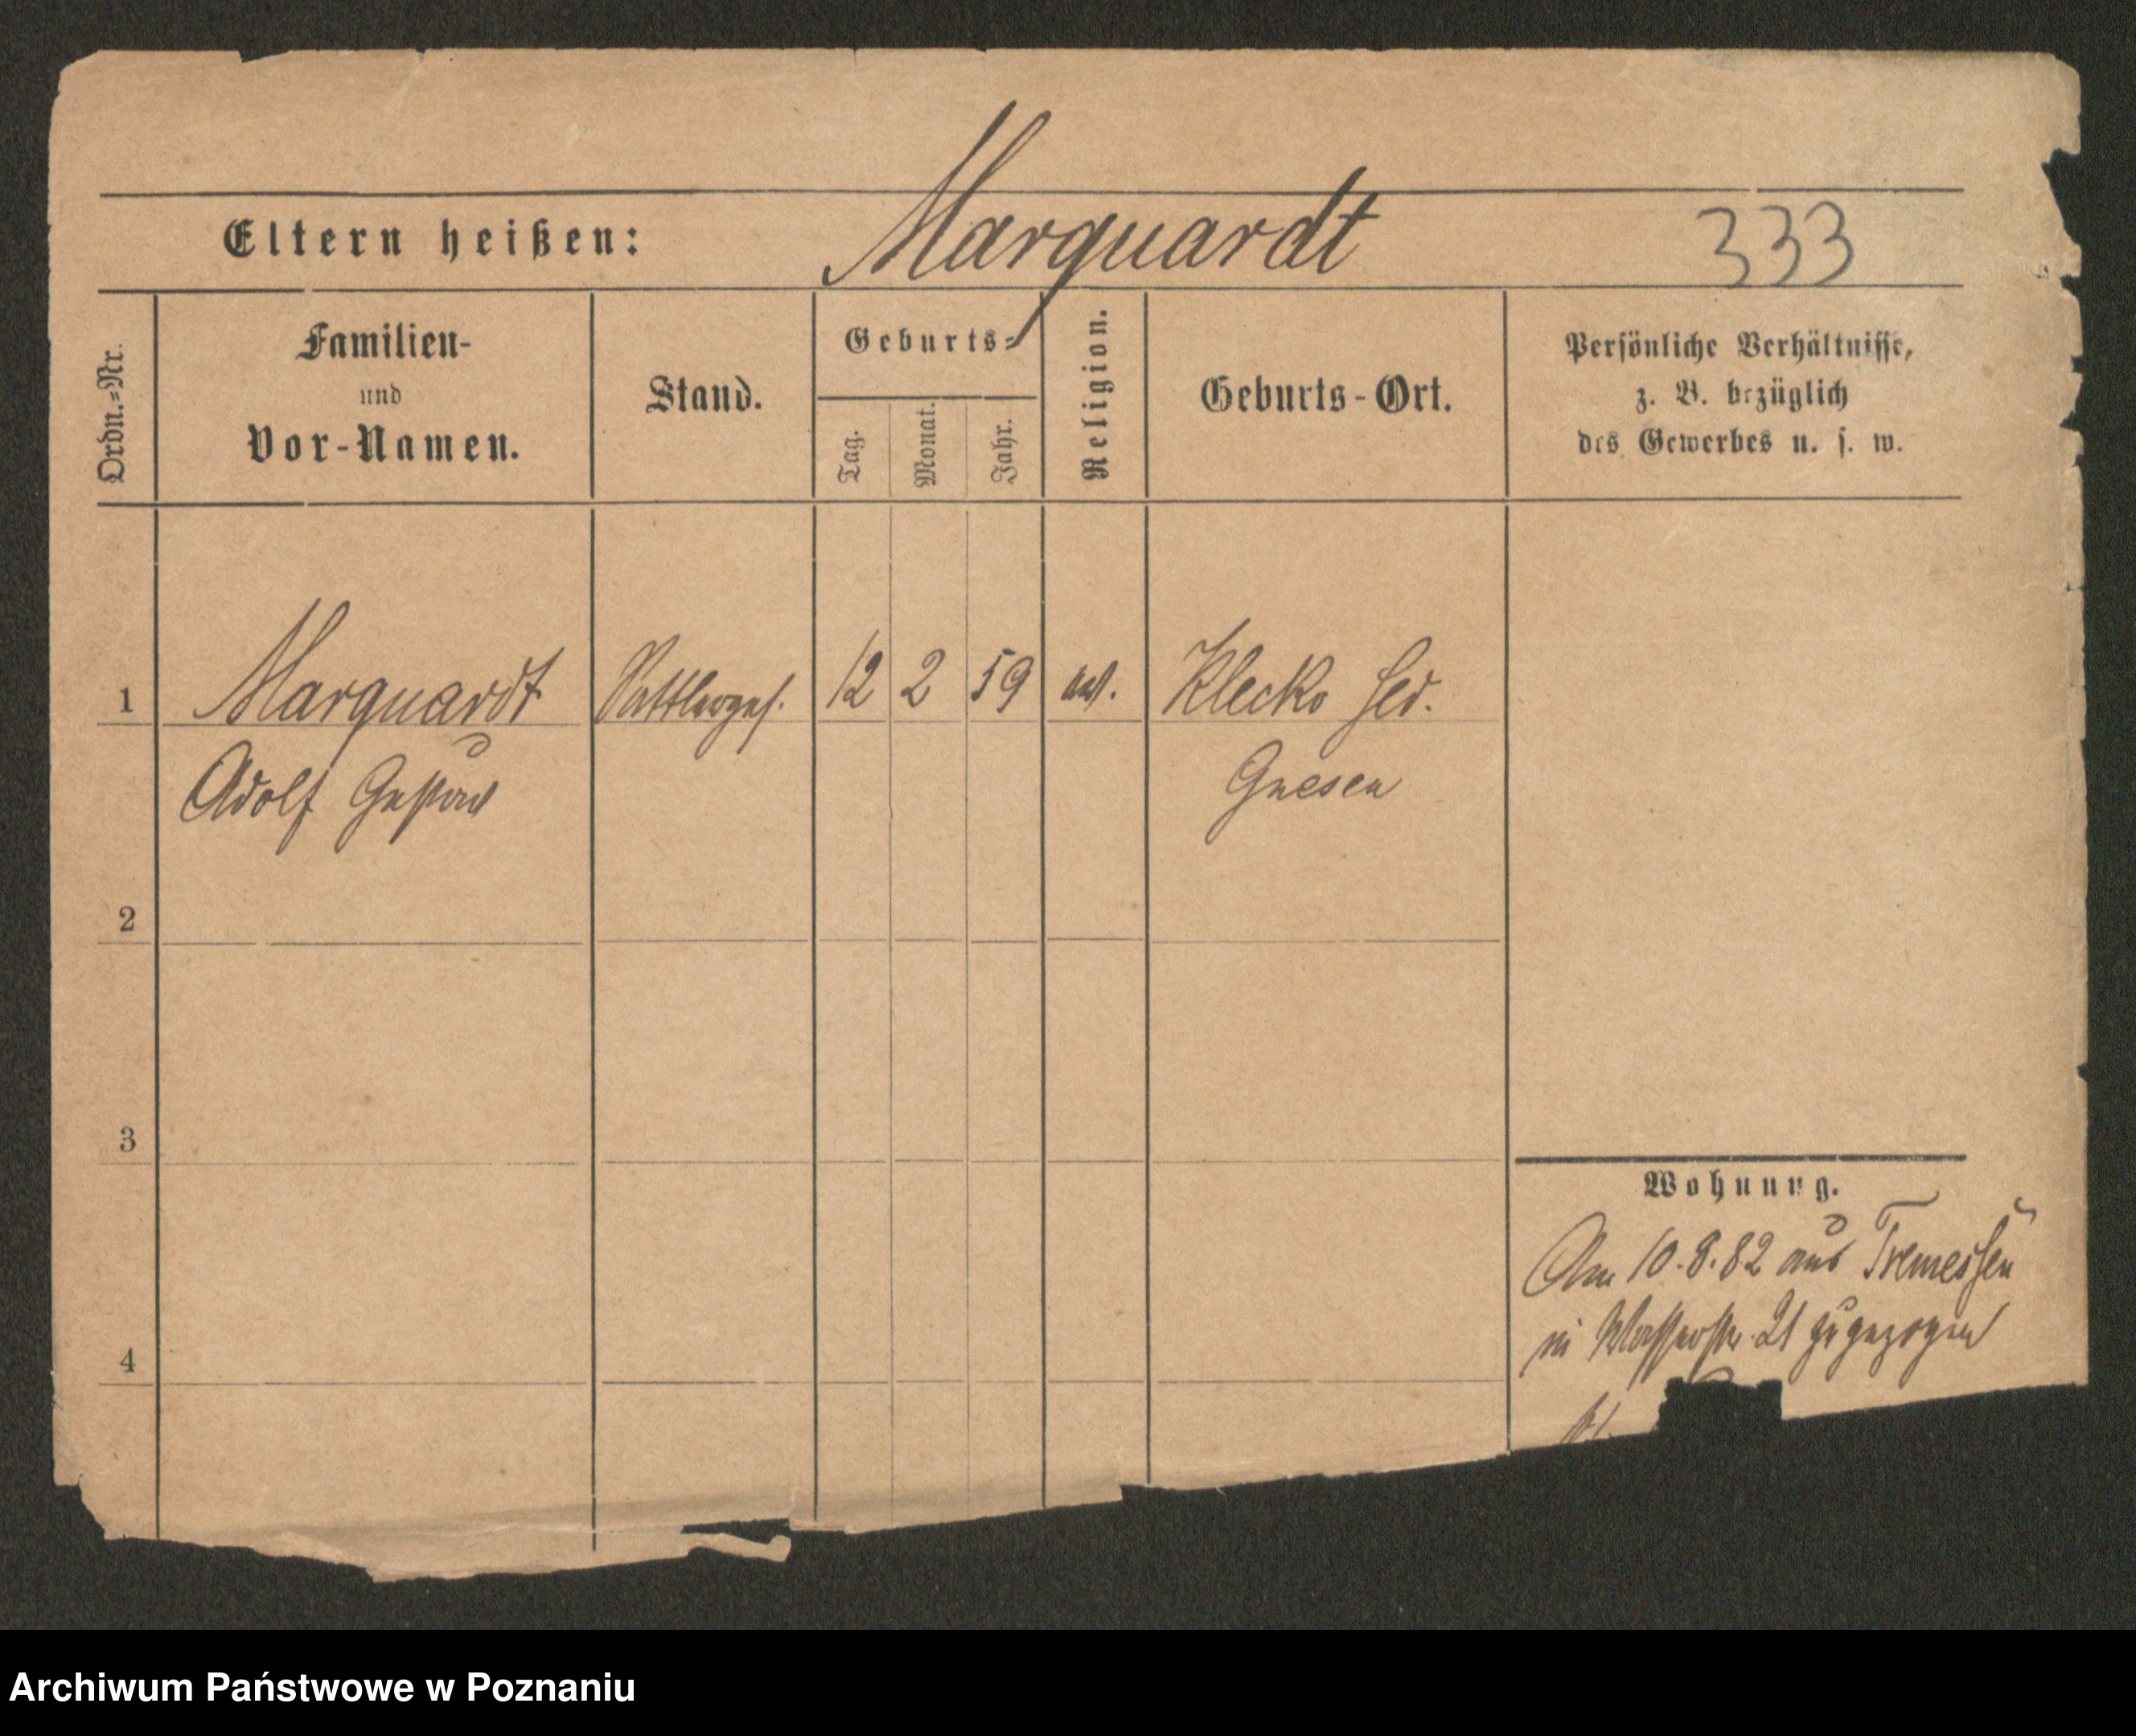 Eltern heißen: Marquardt 333
Ordn.=Nr.
Familien-
und
Vor-Namen.
Stand.
Geburts=
Tag.
Monat.
Jahr.
Religion.
Geburts-Ort.
Persönliche Verhältnisse,
z. B. bezüglich
des Gewerbes u. s. w.
1 Marquardt Sattlerges. 12 2 59 ev. Klecko
Adolf Gustav Gnesen
2
3
4
Wohnung.
Am 10.8.82 aus Tremessen
in Wasserstr. 21 zugezogen
Archiwum Państwowe w Poznaniu